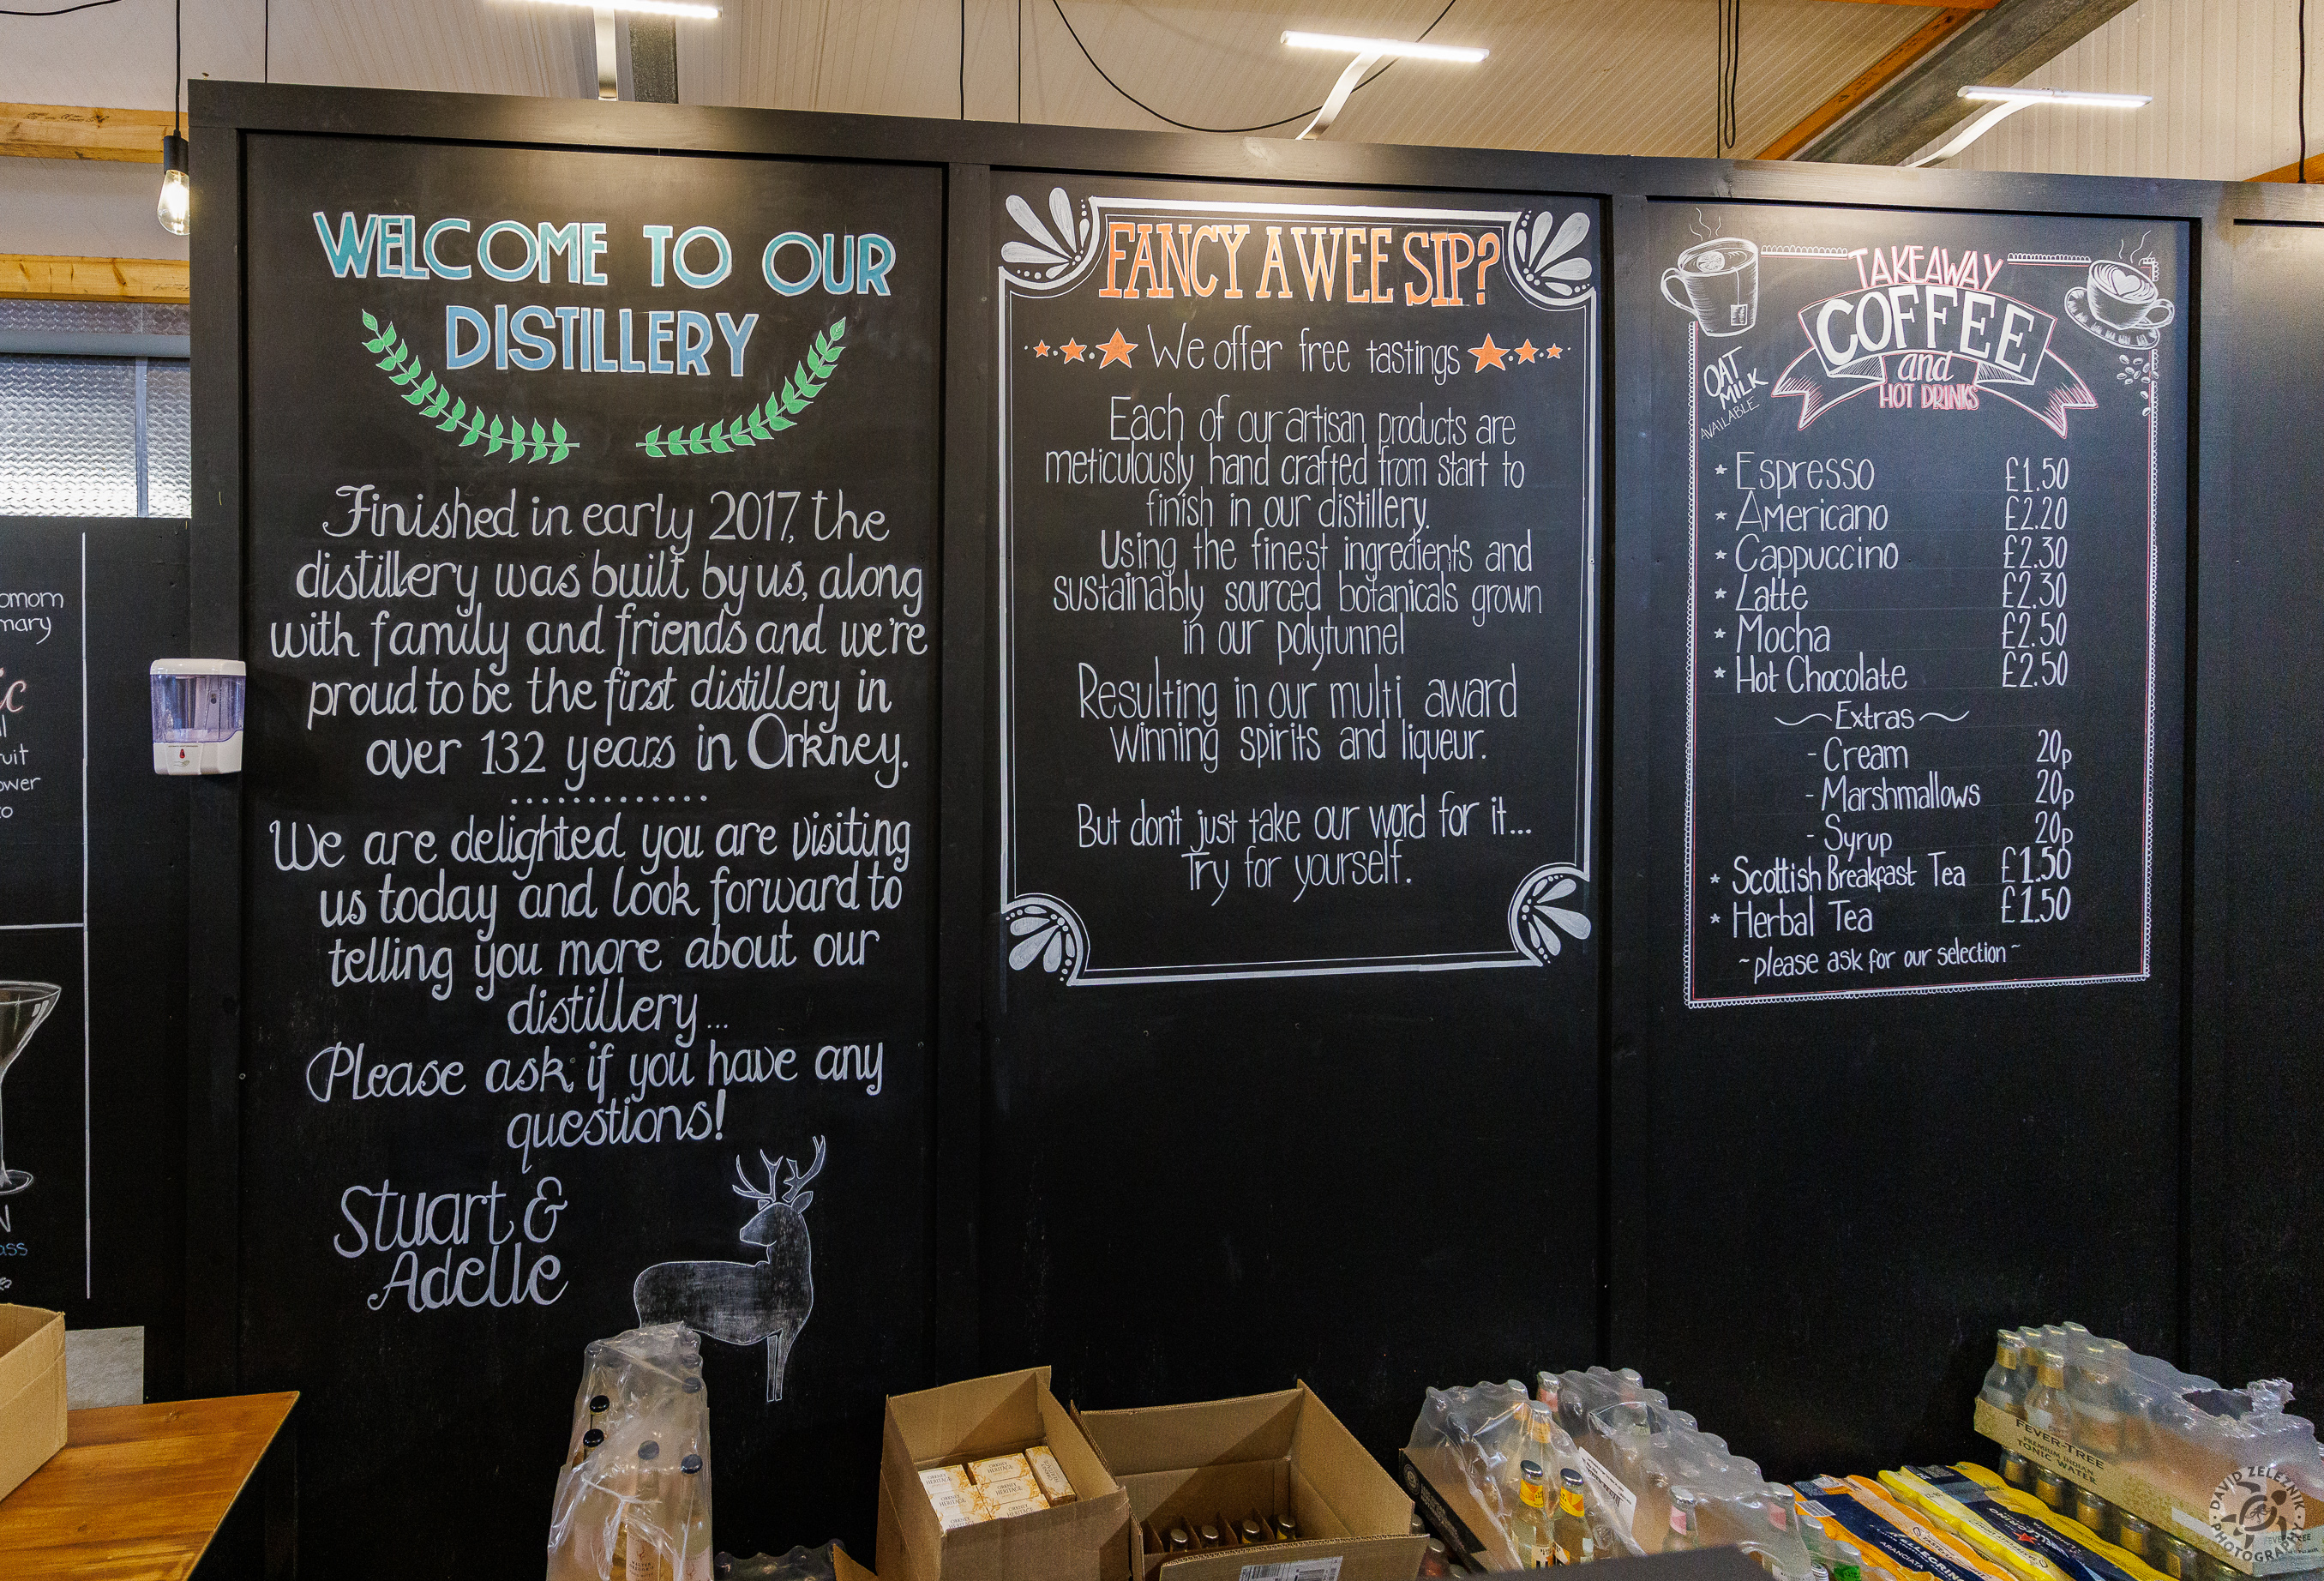 WELCOME TO OUR
DISTILLERY
Finished in early 2017, the
distillery was built by us, along
with family and friends and we're
proud to be the first distillery in
over 132 years in Orkney.
.............
We are delighted you are visiting
us today and look forward to
telling you more about our
distillery...
Please ask if you have any
questions!
Stuart &
Adelle
FANCY A WEE SIP?
We offer free tastings
Each of our artisan products are
meticulously hand crafted from start to
finish in our distillery.
Using the finest ingredients and
sustainably sourced botanicals grown
in our polytunnel
Resulting in our multi award
winning spirits and liqueur.
But don't just take our word for it...
Try for yourself.
TAKEAWAY
COFFEE
and
HOT DRINKS
OAT
MILK
AVAILABLE
* Espresso £1.50
* Americano £2.20
* Cappuccino £2.30
* Latte £2.30
* Mocha £2.50
* Hot Chocolate £2.50
~ Extras ~
- Cream 20p
- Marshmallows 20p
- Syrup 20p
* Scottish Breakfast Tea £1.50
* Herbal Tea £1.50
~ please ask for our selection ~
ORKNEY
HERITAGE
FEVER-TREE
PREMIUM INDIAN
TONIC WATER
ARANCIATA
DAVID ZELEZNIK
PHOTOGRAPHY